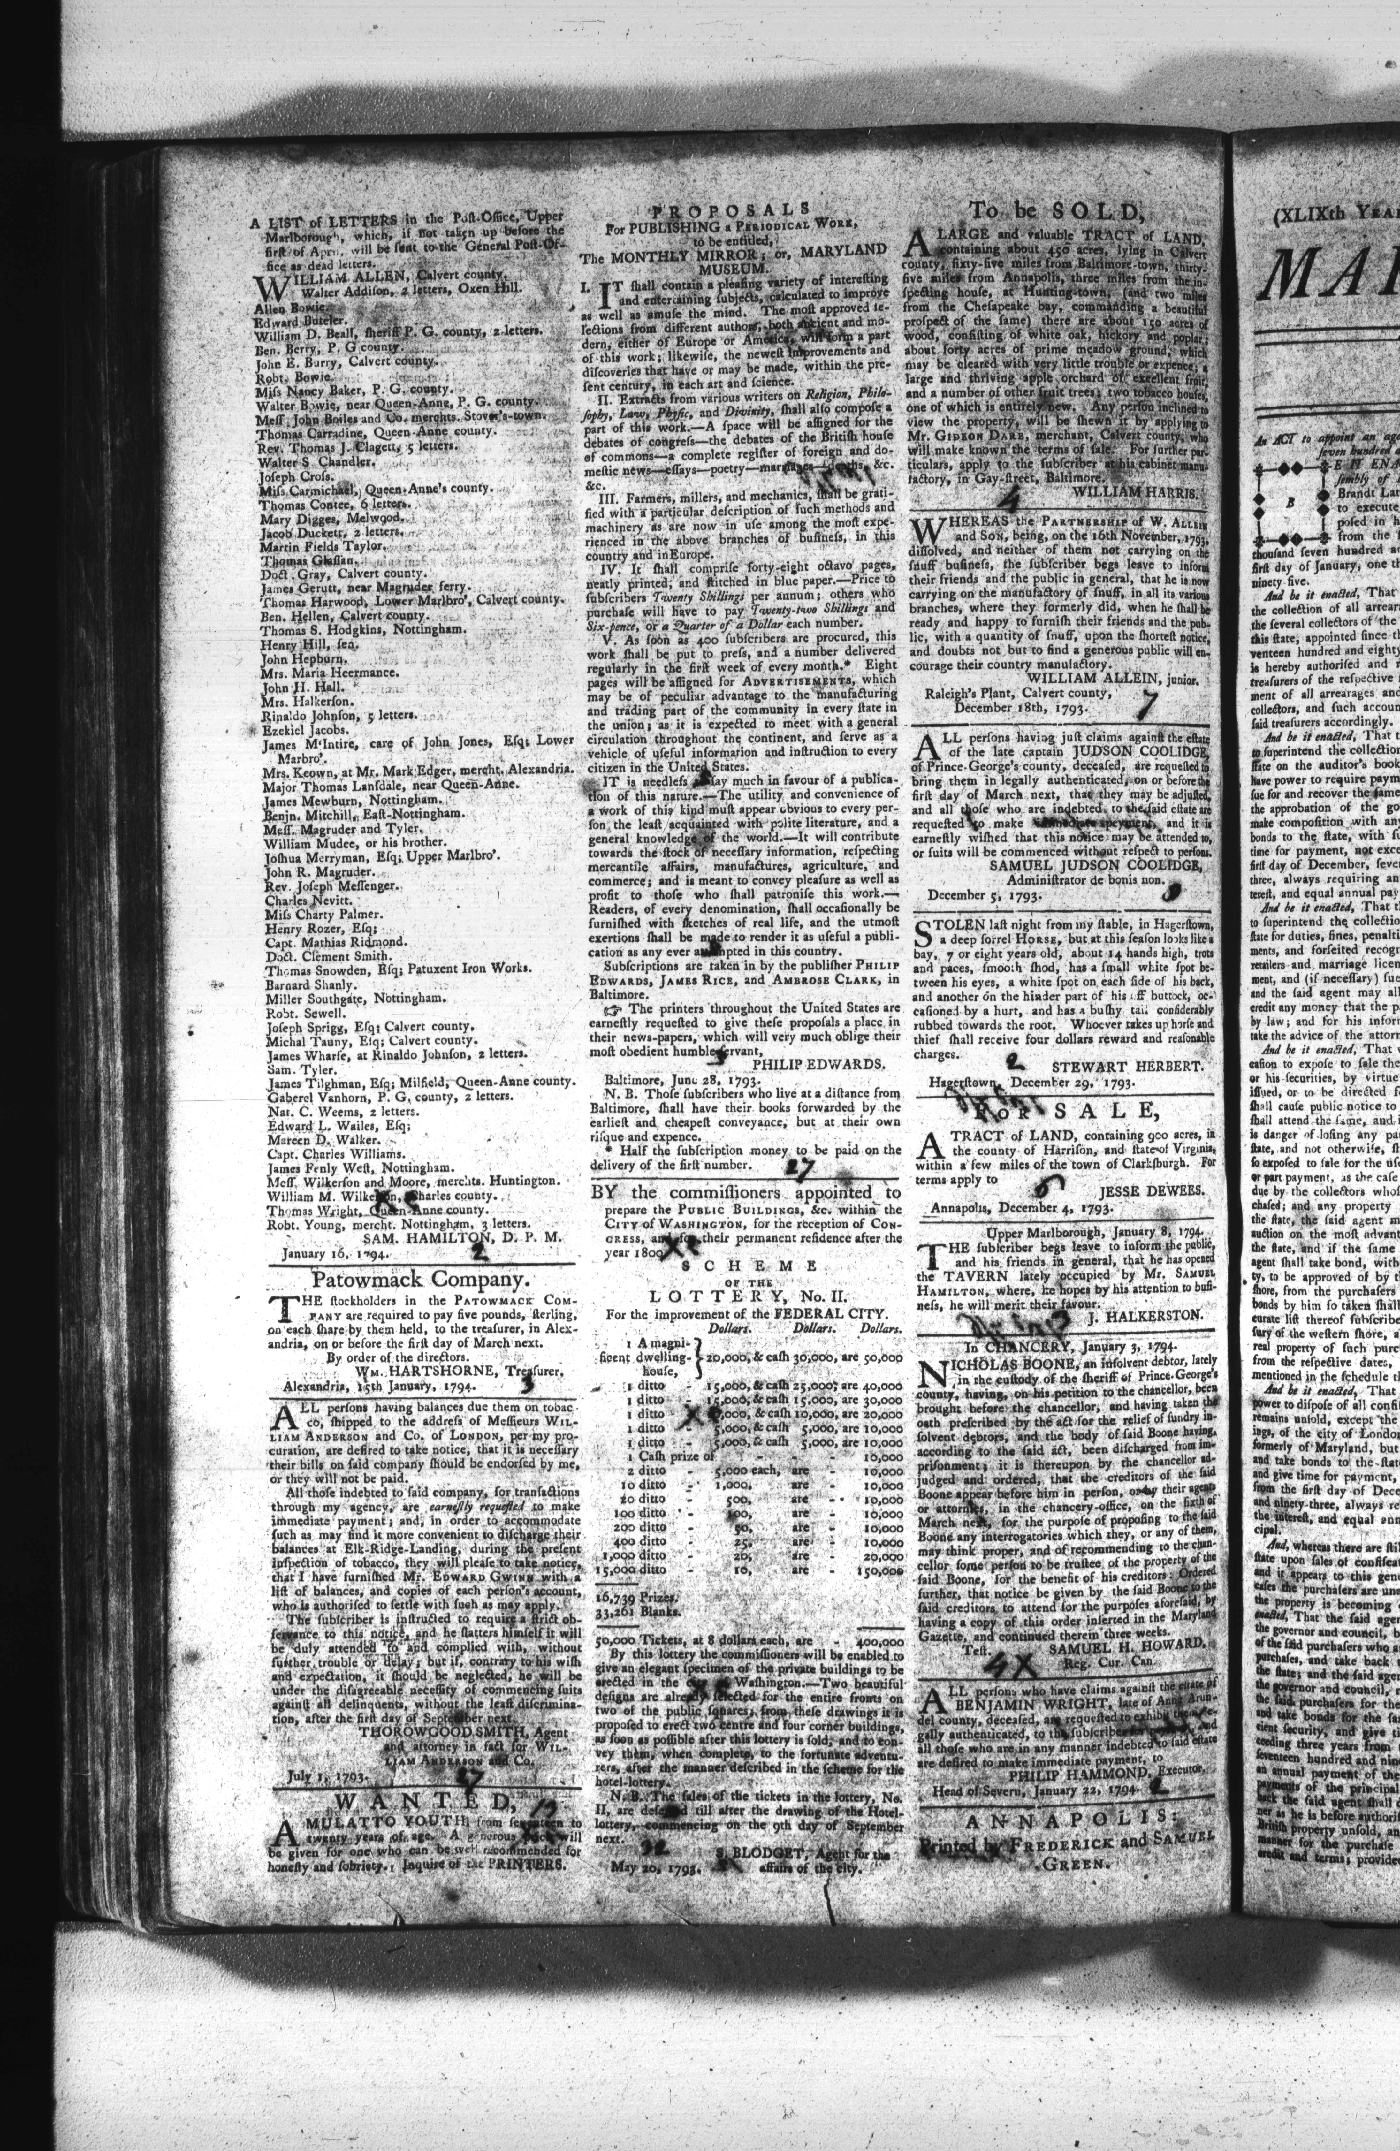 A LIST of LETTERS in the Post-Office, Upper
Marlborough, which, if not taken up before the
first of April, will be sent to the General Post-Of-
fice as dead letters.
WILLIAM ALLEN, Calvert county.
Walter Addison, 2 letters, Oxen Hill.
Allen Bowie.
Edward Buteler.
William D. Beall, sheriff P. G. county, 2 letters.
Ben. Berry, P. G county.
John E. Burry, Calvert county.
Robt. Bowie.
Miss Nancy Baker, P. G. county.
Walter Bowie, near Queen-Anne, P. G. county.
Mess. John Boiles and Co. merchts. Stover's-town.
Thomas Carradine, Queen-Anne county.
Rev. Thomas J. Clagett, 5 letters.
Walter S. Chandler.
Joseph Cross.
Miss Carmichael, Queen-Anne's county.
Thomas Contee, 6 letters.
Mary Digges, Melwood.
Jacob Duckett, 2 letters.
Martin Fields Taylor.
Thomas
Doct. Gray, Calvert county.
James Gerutt, near Magruder ferry.
Thomas Harwood, Lower Marlbro', Calvert county.
Ben. Hellen, Calvert county.
Thomas S. Hodgkins, Nottingham.
Henry Hill, sen.
John Hepburn.
Mrs. Maria Heermance.
John H. Hall.
Mrs. Halkerson.
Rinaldo Johnson, 5 letters.
Ezekiel Jacobs.
James M'Intire, care of John Jones, Esq; Lower
Marbro'.
Mrs. Keown, at Mr. Mark Edger, mercht. Alexandria.
Major Thomas Lansdale, near Queen-Anne.
James Mewburn, Nottingham.
Benjn. Mitchill, East-Nottingham.
Mess. Magruder and Tyler.
William Mudee, or his brother.
Joshua Merryman, Esq; Upper Marlbro'.
John R. Magruder.
Rev. Joseph Messenger.
Charles Nevitt.
Miss Charty Palmer.
Henry Rozer, Esq;
Capt. Mathias Ridmond.
Doct. Clement Smith.
Thomas Snowden, Esq; Patuxent Iron Works.
Barnard Shanly.
Miller Southgate, Nottingham.
Robt. Sewell.
Joseph Sprigg, Esq; Calvert county.
Michal Tauny, Esq; Calvert county.
James Wharfe, at Rinaldo Johnson, 2 letters.
Sam. Tyler.
James Tilghman, Esq; Milfield, Queen-Anne county.
Gaberel Vanhorn, P. G. county, 2 letters.
Nat. C. Weems, 2 letters.
Edward L. Wailes, Esq;
Mareen D. Walker.
Capt. Charles Williams.
James Fenly West, Nottingham.
Mess. Wilkerson and Moore, merchts. Huntington.
William M. Wilkerson, Charles county.
Thomas Wright, Queen-Anne county.
Robt. Young, mercht. Nottingham, 3 letters.
SAM. HAMILTON, D. P. M.
January 16, 1794. 2
Patowmack Company.
THE stockholders in the PATOWMACK COM-
PANY are required to pay five pounds, sterling,
on each share by them held, to the treasurer, in Alex-
andria, on or before the first day of March next.
By order of the directors.
WM. HARTSHORNE, Treasurer.
Alexandria, 15th January, 1794. 3
ALL persons having balances due them on tobac-
co, shipped to the address of Messieurs WIL-
LIAM ANDERSON and Co. of LONDON, per my pro-
curation, are desired to take notice, that it is necessary
their bills on said company should be endorsed by me,
or they will not be paid.
All those indebted to said company, for transactions
through my agency, are earnestly requested to make
immediate payment; and, in order to accommodate
such as may find it more convenient to discharge their
balances at Elk-Ridge-Landing, during the present
inspection of tobacco, they will please to take notice,
that I have furnished Mr. EDWARD GWINN with a
list of balances, and copies of each person's account,
who is authorised to settle with such as may apply.
The subscriber is instructed to require a strict ob-
servance to this notice, and he flatters himself it will
be duly attended to and complied with, without
further trouble or delay; but if, contrary to his wish
and expectation, it should be neglected, he will be
under the disagreeable necessity of commencing suits
against all delinquents, without the least discrimina-
tion, after the first day of September next.
THOROWGOOD SMITH, Agent
and attorney in fact for WIL-
LIAM ANDERSON and Co.
July 1, 1793. 27
WANTED,
A MULATTO YOUTH, from seventeen to
twenty years of age. A generous price will
be given for one who can be well recommended for
honesty and sobriety. Inquire of the PRINTERS.
PROPOSALS
For PUBLISHING a PERIODICAL WORK,
to be entitled,
The MONTHLY MIRROR; or, MARYLAND
MUSEUM.
I. IT shall contain a pleasing variety of interesting
and entertaining subjects, calculated to improve
as well as amuse the mind. The most approved se-
lections from different authors, both ancient and mo-
dern, either of Europe or America, will form a part
of this work; likewise, the newest improvements and
discoveries that have or may be made, within the pre-
sent century, in each art and science.
II. Extracts from various writers on Religion, Philo-
sophy, Law, Physic, and Divinity, shall also compose a
part of this work.—A space will be assigned for the
debates of congress—the debates of the British house
of commons—a complete register of foreign and do-
mestic news—essays—poetry—marriages—deaths, &c.
&c.
III. Farmers, millers, and mechanics, shall be grati-
fied with a particular description of such methods and
machinery as are now in use among the most expe-
rienced in the above branches of business, in this
country and in Europe.
IV. It shall comprise forty-eight octavo pages,
neatly printed, and stitched in blue paper.—Price to
subscribers Twenty Shillings per annum; others who
purchase will have to pay Twenty-two Shillings and
Six-pence, or a Quarter of a Dollar each number.
V. As soon as 400 subscribers are procured, this
work shall be put to press, and a number delivered
regularly in the first week of every month.* Eight
pages will be assigned for ADVERTISEMENTS, which
may be of peculiar advantage to the manufacturing
and trading part of the community in every state in
the union; as it is expected to meet with a general
circulation throughout the continent, and serve as a
vehicle of useful information and instruction to every
citizen in the United States.
IT is needless say much in favour of a publica-
tion of this nature.—The utility and convenience of
a work of this kind must appear obvious to every per-
son the least acquainted with polite literature, and a
general knowledge of the world.—It will contribute
towards the stock of necessary information, respecting
mercantile affairs, manufactures, agriculture, and
commerce; and is meant to convey pleasure as well as
profit to those who shall patronise this work.—
Readers, of every denomination, shall occasionally be
furnished with sketches of real life, and the utmost
exertions shall be made to render it as useful a publi-
cation as any ever attempted in this country.
Subscriptions are taken in by the publisher PHILIP
EDWARDS, JAMES RICE, and AMBROSE CLARK, in
Baltimore.
☞ The printers throughout the United States are
earnestly requested to give these proposals a place in
their news-papers, which will very much oblige their
most obedient humble servant,
PHILIP EDWARDS.
Baltimore, June 28, 1793.
N. B. Those subscribers who live at a distance from
Baltimore, shall have their books forwarded by the
earliest and cheapest conveyance, but at their own
risque and expence.
* Half the subscription money to be paid on the
delivery of the first number. 27
BY the commissioners appointed to
prepare the PUBLIC BUILDINGS, &c. within the
CITY of WASHINGTON, for the reception of CON-
GRESS, and for their permanent residence after the
year 1800
SCHEME
OF THE
LOTTERY, No. II.
For the improvement of the FEDERAL CITY.
Dollars. Dollars. Dollars.
1 A magni-
ficent dwelling- } 20,000, & cash 30,000, are 50,000
house,
1 ditto - 15,000, & cash 25,000, are 40,000
1 ditto - 15,000, & cash 15,000, are 30,000
1 ditto ,000, & cash 10,000, are 20,000
1 ditto - 5,000, & cash 5,000, are 10,000
1 ditto - 5,000, & cash 5,000, are 10,000
1 Cash prize of - - - 10,000
2 ditto - 5,000 each, are - 10,000
10 ditto - 1,000, are - 10,000
20 ditto - 500, are - 10,000
100 ditto - 100, are - 10,000
200 ditto - 50, are - 10,000
400 ditto - 25, are - 10,000
1,000 ditto - 20, are - 20,000
15,000 ditto - 10, are - 150,000
16,739 Prizes.
33,261 Blanks.
50,000 Tickets, at 8 dollars each, are - 400,000
By this lottery the commissioners will be enabled to
give an elegant specimen of the private buildings to be
erected in the Washington.—Two beautiful
designs are already selected for the entire fronts on
two of the public squares; from these drawings it is
proposed to erect two centre and four corner buildings,
as soon as possible after this lottery is sold, and to con-
vey them, when complete, to the fortunate adventu-
rers, after the manner described in the scheme for the
hotel-lottery.
N. B. The sales of the tickets in the lottery, No.
II, are deferred till after the drawing of the Hotel-
lottery, commencing on the 9th day of September
next.
S. BLODGET, Agent for the
May 20, 1793. affairs of the city.
To be SOLD,
A LARGE and valuable TRACT of LAND,
containing about 450 acres, lying in Calvert
county, sixty-five miles from Baltimore-town, thirty-
five miles from Annapolis, three miles from the in-
specting house, at Hunting-town, (and two miles
from the Chesapeake bay, commanding a beautiful
prospect of the same) there are about 150 acres of
wood, consisting of white oak, hickory and poplar;
about forty acres of prime meadow ground, which
may be cleared with very little trouble or expence; a
large and thriving apple orchard of excellent fruit,
and a number of other fruit trees; two tobacco houses,
one of which is entirely new. Any person inclined to
view the property, will be shewn it by applying to
Mr. GIDEON DARE, merchant, Calvert county, who
will make known the terms of sale. For further par-
ticulars, apply to the subscriber at his cabinet manu-
factory, in Gay-street, Baltimore.
4 WILLIAM HARRIS.
WHEREAS the PARTNERSHIP of W. ALLEIN
and SON, being, on the 16th November, 1793,
dissolved, and neither of them not carrying on the
snuff business, the subscriber begs leave to inform
their friends and the public in general, that he is now
carrying on the manufactory of snuff, in all its various
branches, where they formerly did, when he shall be
ready and happy to furnish their friends and the pub-
lic, with a quantity of snuff, upon the shortest notice,
and doubts not but to find a generous public will en-
courage their country manufactory.
WILLIAM ALLEIN, junior.
Raleigh's Plant, Calvert county,
December 18th, 1793. 7
ALL persons having just claims against the estate
of the late captain JUDSON COOLIDGE,
of Prince-George's county, deceased, are requested to
bring them in legally authenticated, on or before the
first day of March next, that they may be adjusted,
and all those who are indebted to the said estate are
requested to make immediate payment, and it is
earnestly wished that this notice may be attended to,
or suits will be commenced without respect to persons.
SAMUEL JUDSON COOLIDGE,
Administrator de bonis non.
December 5, 1793.
STOLEN last night from my stable, in Hagerstown,
a deep sorrel HORSE, but at this season looks like a
bay, 7 or eight years old, about 14 hands high, trots
and paces, smooth shod, has a small white spot be-
tween his eyes, a white spot on each side of his back,
and another on the hinder part of his off buttock, oc-
casioned by a hurt, and has a bushy tail considerably
rubbed towards the root. Whoever takes up horse and
thief shall receive four dollars reward and reasonable
charges.
2 STEWART HERBERT.
Hagerstown, December 29, 1793.
FOR SALE,
A TRACT of LAND, containing 900 acres, in
the county of Harrison, and state of Virginia,
within a few miles of the town of Clarksburgh. For
terms apply to
6 JESSE DEWEES.
Annapolis, December 4, 1793.
Upper Marlborough, January 8, 1794.
THE subscriber begs leave to inform the public,
and his friends in general, that he has opened
the TAVERN lately occupied by Mr. SAMUEL
HAMILTON, where, he hopes by his attention to busi-
ness, he will merit their favour.
J. HALKERSTON.
In CHANCERY, January 3, 1794.
NICHOLAS BOONE, an insolvent debtor, lately
in the custody of the sheriff of Prince-George's
county, having, on his petition to the chancellor, been
brought before the chancellor, and having taken the
oath prescribed by the act for the relief of sundry in-
solvent debtors, and the body of said Boone having,
according to the said act, been discharged from im-
prisonment; it is thereupon by the chancellor ad-
judged and ordered, that the creditors of the said
Boone appear before him in person, or by their agents
or attornies, in the chancery-office, on the sixth of
March next, for the purpose of proposing to the said
Boone any interrogatories which they, or any of them,
may think proper, and of recommending to the chan-
cellor some person to be trustee of the property of the
said Boone, for the benefit of his creditors: Ordered
further, that notice be given by the said Boone to the
said creditors to attend for the purposes aforesaid, by
having a copy of this order inserted in the Maryland
Gazette, and continued therein three weeks.
Test. SAMUEL H. HOWARD,
4X Reg. Cur. Can.
ALL persons who have claims against the estate of
BENJAMIN WRIGHT, late of Anne Arun-
del county, deceased, are requested to exhibit
gally authenticated, to the subscriber and
all those who are in any manner indebted to said estate
are desired to make immediate payment, to
PHILIP HAMMOND, Executor.
Head of Severn, January 22, 1794. 2
ANNAPOLIS:
Printed by FREDERICK and SAMUEL
GREEN.
(XLIXth YEA
MAR
An ACT to appoint an age
seven hundred a
BE IT ENA
sembly of
Brandt Lan
to execute
posed in
from the
thousand seven hundred an
first day of January, one th
ninety-five.
And be it enacted, That
the collection of all arrear
the several collectors of the
this state, appointed since th
venteen hundred and eighty
is hereby authorised and r
treasurers of the respective
ment of all arrearages and
collectors, and such accoun
said treasurers accordingly.
And be it enacted, That t
to superintend the collection
state on the auditor's book
have power to require paym
sue for and recover the same
the approbation of the go
make composition with any
bonds to the state, with su
time for payment, not exce
first day of December, seve
three, always requiring an
terest, and equal annual pay
And be it enacted, That t
to superintend the collection
state for duties, fines, penalti
ments, and forfeited recogn
retailers and marriage licen
ment, and (if necessary) sue
and the said agent may all
credit any money that the p
by law; and for his inform
take the advice of the attorn
And be it enacted, That
casion to expose to sale the
or his securities, by virtue
issued, or to be directed f
shall cause public notice to
shall attend the same, and i
is danger of losing any pa
state, and not otherwise, th
so exposed to sale for the use
or part payment, as the case
due by the collectors whos
chased; and any property
the state, the said agent m
auction on the most advant
the state, and if the same
agent shall take bond, with
ty, to be approved of by t
shore, from the purchasers
bonds by him so taken shall
curate list thereof subscribe
sury of the western shore, a
real property of such purc
from the respective dates,
mentioned in the schedule th
And be it enacted, That
power to dispose of all confi
remains unsold, except the
ings, of the city of London
formerly of Maryland, but
and take bonds to the state
and give time for payment,
from the first day of Dece
and ninety-three, always re
the interest, and equal ann
cipal.
And, whereas there are stil
state upon sales of confiscat
and it appears to this gene
cases the purchasers are une
the property is becoming
enacted, That the said agen
the governor and council, b
of the said purchasers who a
purchases, and take back
the state; and the said agen
the governor and council, r
the said purchasers for the
and take bonds for the sa
cient security, and give
ceeding three years from
seventeen hundred and nine
an annual payment of the
payments of the principal
back the said agent shall
ner as he is before authori
British property unsold, an
manner for the purchase
credit and terms; provided